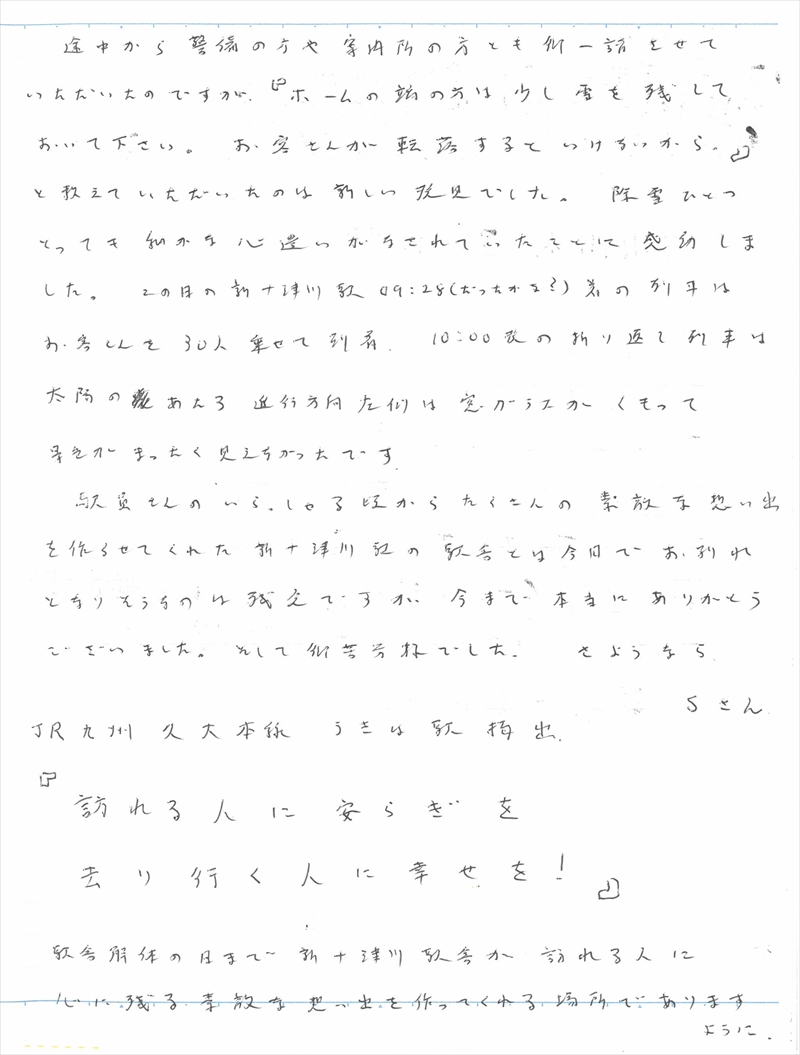 途中から警備の方や案内所の方とも御一話をせて
いただいたのですが、『ホームの端の方は少し雪を残して
おいて下さい。お客さんが転落するといけないから。』
と教えていただいたのは新しい発見でした。除雪ひとつ
とっても細かな心遣いがなされていたことに感動しま
した。この日の新十津川駅09:28(だったかな?)着の列車は
お客さんを30人乗せて到着。10:00発の折り返し列車は
太陽のあたる進行方向左側は窓ガラスがくもって
景色がまったく見えなかったです
駅員さんのいらっしゃる頃からたくさんの素敵な想い出
を作らせてくれた新十津川駅の駅舎とは今日でお別れ
となりそうなのは残念ですが、今まで本当にありがとう
ございました。そして御苦労様でした。さようなら
Sさん
JR九州 久大本線 うきは駅 掲出
『
訪れる人に安らぎを
去り行く人に幸せを!
』
駅舎解体の日まで新十津川駅舎が訪れる人に
心に残る素敵な想い出を作ってくれる場所であります
ように。